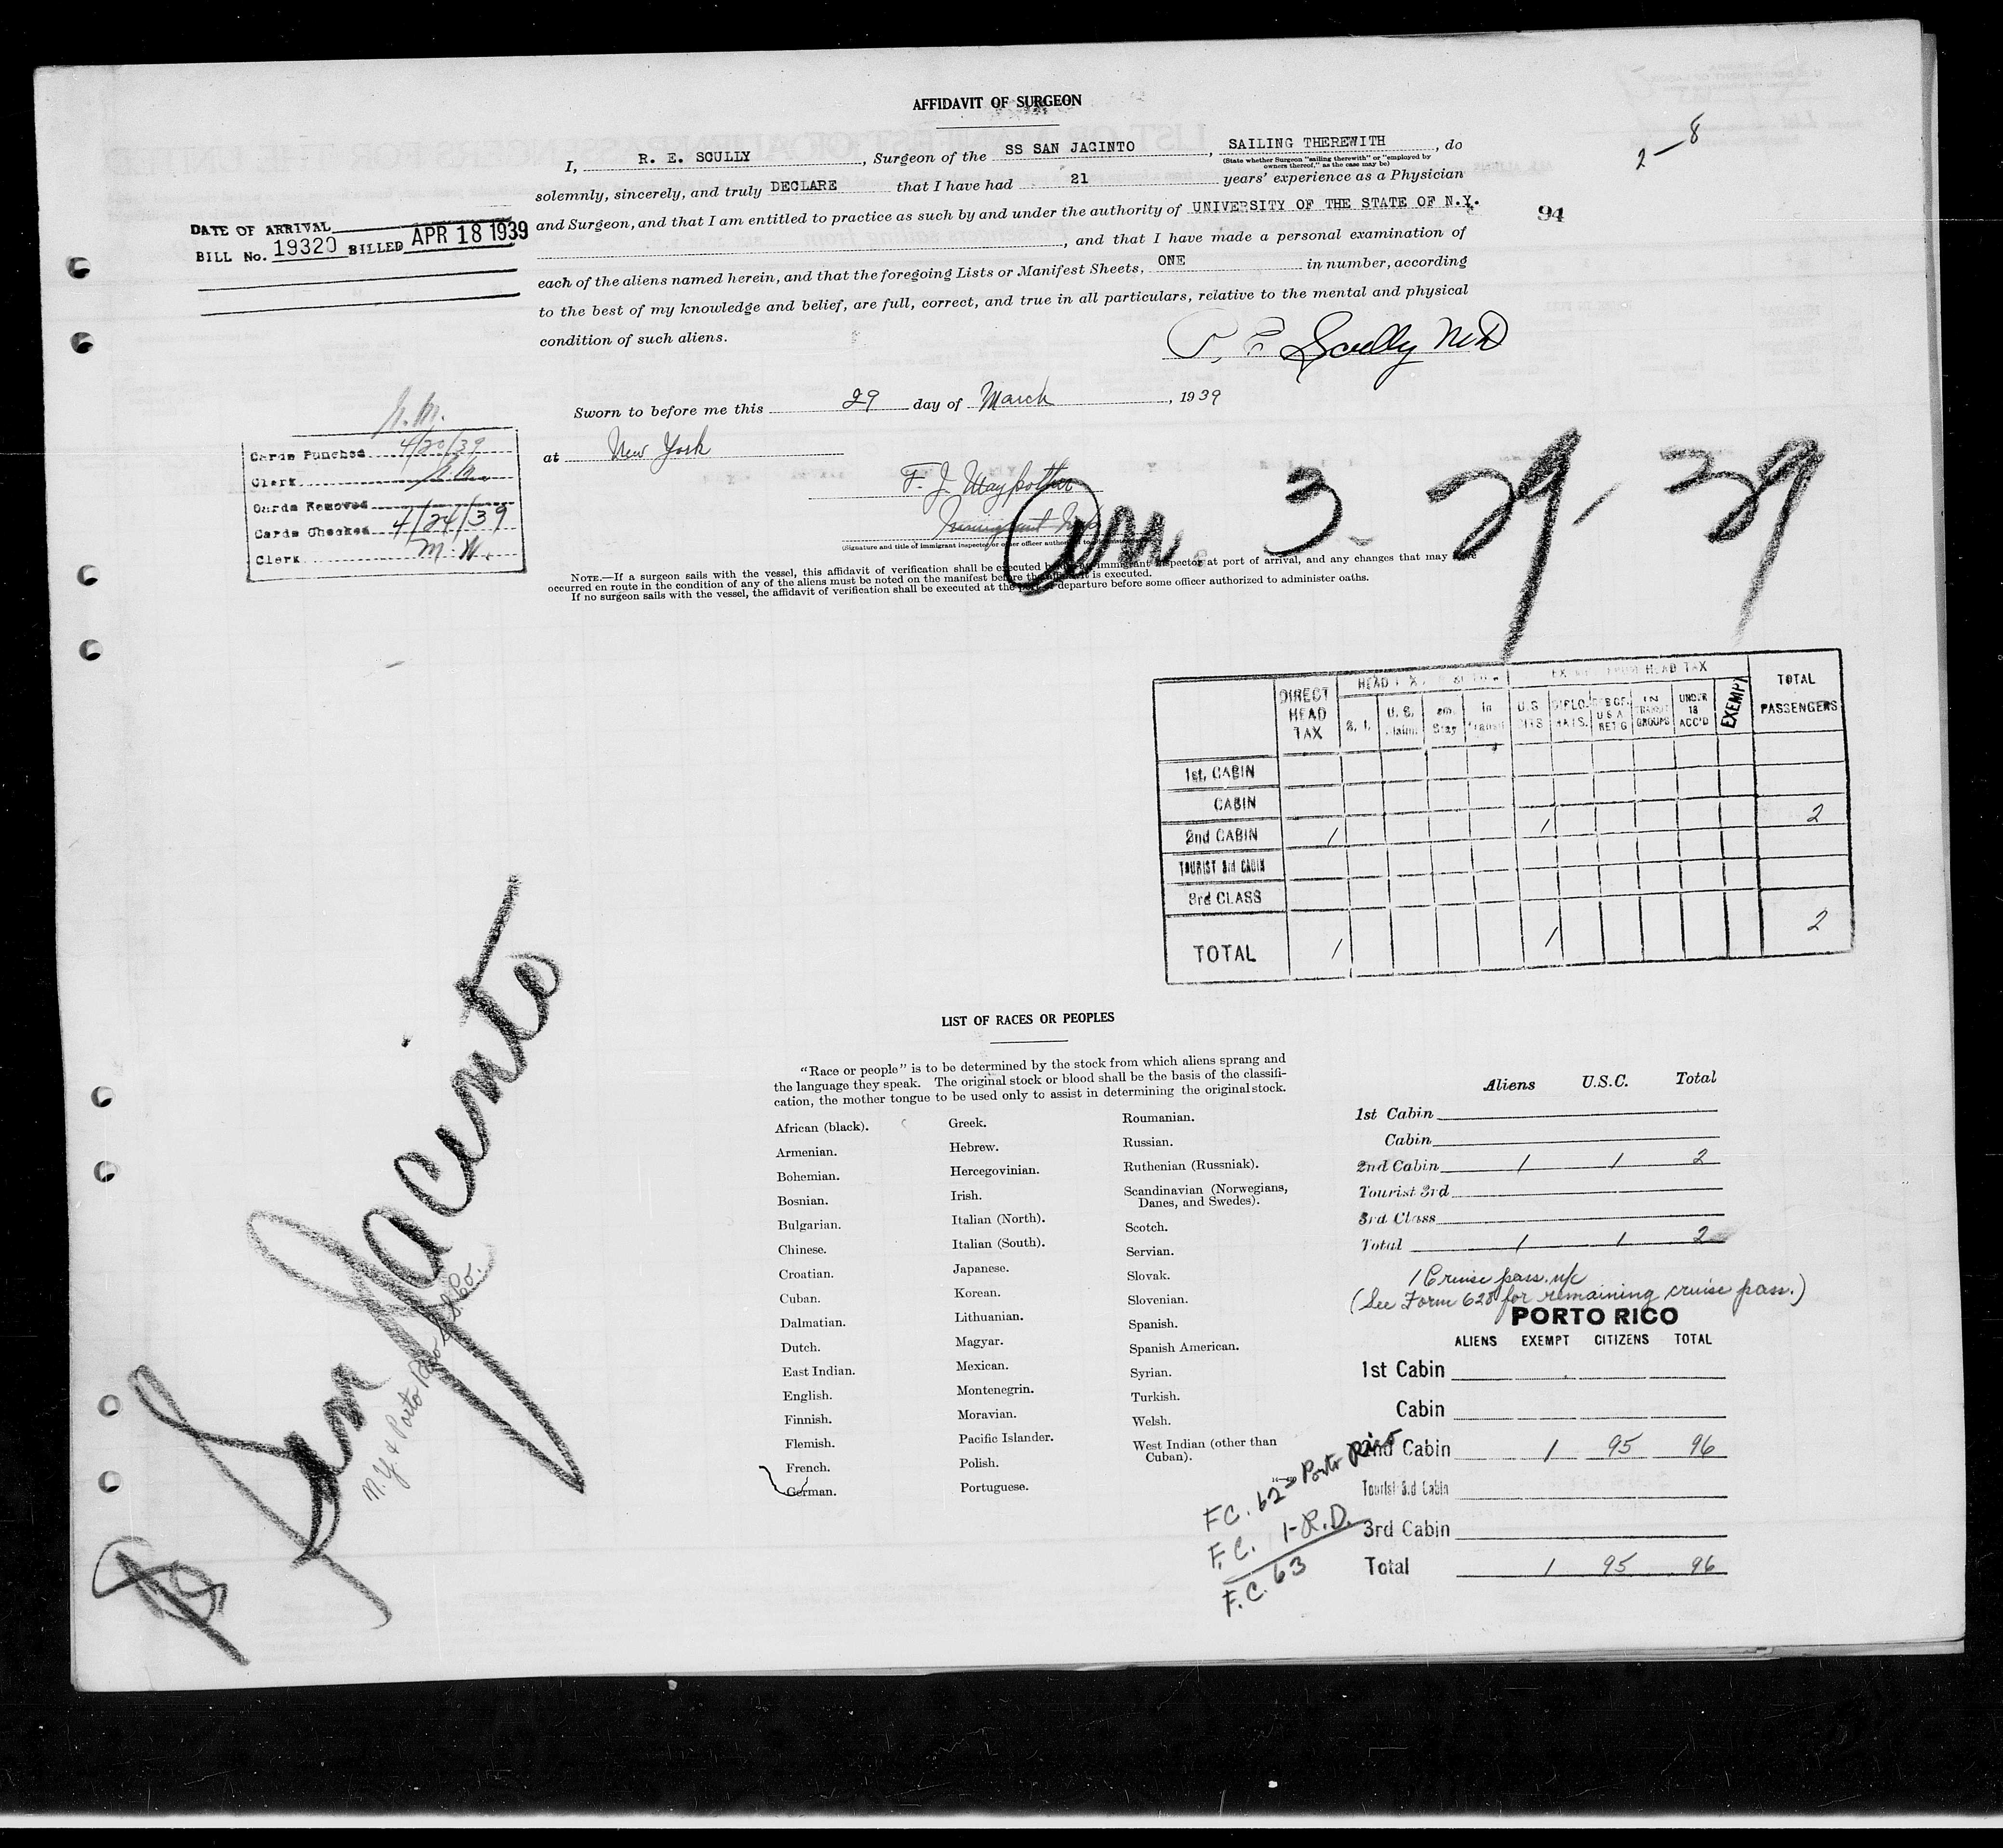 AFFIDAVIT OF SURGEON
I, R. E. SCULLY, Surgeon of the SS SAN JACINTO, SAILING THEREWITH, do
(State whether Surgeon "sailing therewith" or "employed by owners thereof," as the case may be)
solemnly, sincerely, and truly DECLARE that I have had 21 years' experience as a Physician
and Surgeon, and that I am entitled to practice as such by and under the authority of UNIVERSITY OF THE STATE OF N.Y.
, and that I have made a personal examination of
each of the aliens named herein, and that the foregoing Lists or Manifest Sheets, ONE in number, according
to the best of my knowledge and belief, are full, correct, and true in all particulars, relative to the mental and physical
condition of such aliens.
2-8
94
DATE OF ARRIVAL
BILL No. 19320 BILLED APR 18 1939
Scully MD
Sworn to before me this 29 day of March, 1939
at New York
F. J.
(Signature and title of immigrant inspector or other officer
Cards Punched 4/20/39
Clerk
Cards Removed
Cards Checked 4/24/39
Clerk M. W.
3-29-39
NOTE.—If a surgeon sails with the vessel, this affidavit of verification shall be executed immigrant inspector at port of arrival, and any changes that may
occurred en route in the condition of any of the aliens must be noted on the manifest before the is executed.
If no surgeon sails with the vessel, the affidavit of verification shall be executed at the departure before some officer authorized to administer oaths.
DIRECT HEAD TAX
U.S.
EXEMPT
TOTAL PASSENGERS
IN TRANSIT GROUPS
UNDER 16 ACC'D
1st. CABIN
CABIN
2nd CABIN 1 1 2
TOURIST 3rd CABIN
3rd CLASS
TOTAL 1 1 2
San Jacinto
N.Y. & Porto Rico S.S. Co.
LIST OF RACES OR PEOPLES
"Race or people" is to be determined by the stock from which aliens sprang and
the language they speak. The original stock or blood shall be the basis of the classifi-
cation, the mother tongue to be used only to assist in determining the original stock.
African (black).
Armenian.
Bohemian.
Bosnian.
Bulgarian.
Chinese.
Croatian.
Cuban.
Dalmatian.
Dutch.
East Indian.
English.
Finnish.
Flemish.
French.
German.
Greek.
Hebrew.
Hercegovinian.
Irish.
Italian (North).
Italian (South).
Japanese.
Korean.
Lithuanian.
Magyar.
Mexican.
Montenegrin.
Moravian.
Pacific Islander.
Polish.
Portuguese.
Roumanian.
Russian.
Ruthenian (Russniak).
Scandinavian (Norwegians,
Danes, and Swedes).
Scotch.
Servian.
Slovak.
Slovenian.
Spanish.
Spanish American.
Syrian.
Turkish.
Welsh.
West Indian (other than
Cuban).
Aliens U.S.C. Total
1st Cabin
Cabin
2nd Cabin 1 1 2
Tourist 3rd
3rd Class
Total 1 1 2
1 Cruise pass.
(See Form 628 for remaining cruise pass.)
PORTO RICO
ALIENS EXEMPT CITIZENS TOTAL
1st Cabin
Cabin
2nd Cabin 1 95 96
Tourist 3rd Cabin
3rd Cabin
Total 1 95 96
F.C. 62 Porto Rico
F.C. 1-R.D.
F.C. 63